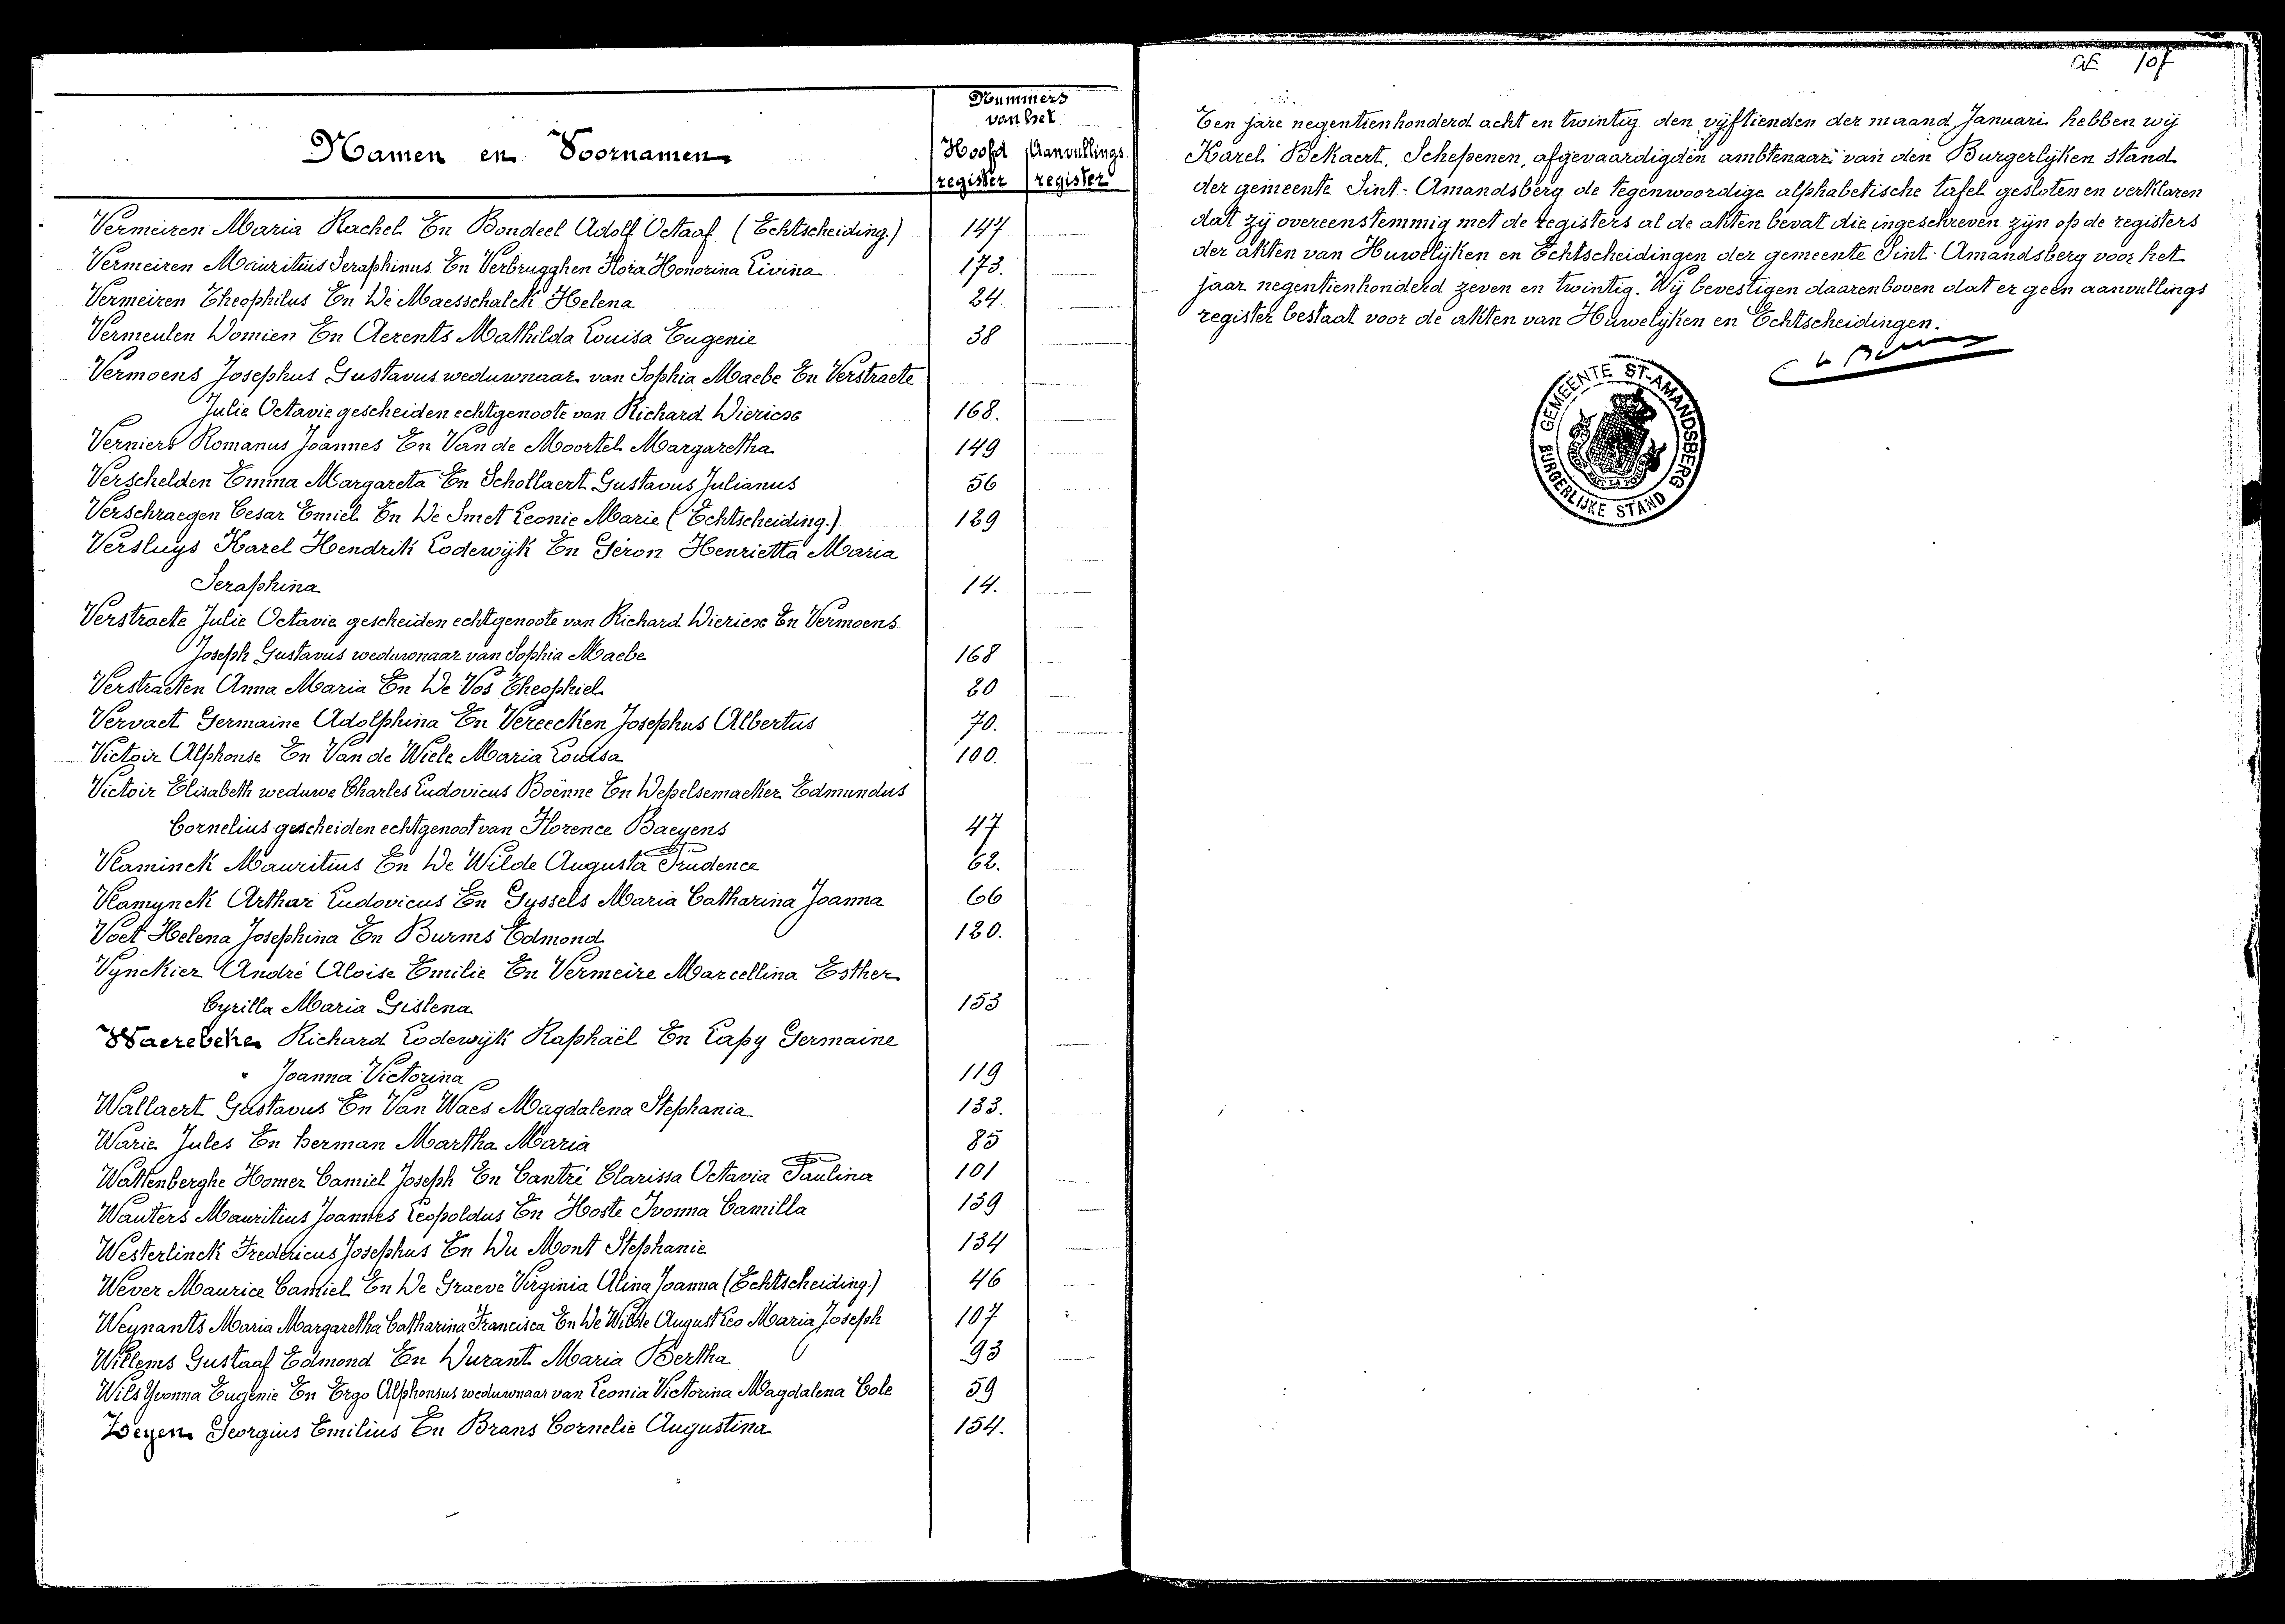 Nummers
van het
Namen en Voornamen
Hoofd register
Aanvullings register
Vermeiren Maria Rachel En Bondeel Adolf Octaaf (Echtscheiding.) 147
Vermeiren Mauritius Seraphinus En Verbrugghen Flora Honorina Livina 173.
Vermeiren Theophilus En De Maesschalck Helena 24.
Vermeulen Domien En Aerents Mathilda Louisa Eugenie 38
Vermoens Josephus Gustavus weduwnaar van Sophia Maebe En Verstraete
Julie Octavie gescheiden echtgenoote van Richard Dierickx 168.
Verniers Romanus Joannes En Van de Moortel Margaretha 149
Verschelden Emma Margareta En Schollaert Gustavus Julianus 56
Verschraegen Cesar Emiel En De Smet Leonie Marie (Echtscheiding.) 129
Versluys Karel Hendrik Lodewijk En Géron Henrietta Maria
Seraphina 14.
Verstraete Julie Octavie gescheiden echtgenoote van Richard Dierickx En Vermoens
Joseph Gustavus weduwnaar van Sophia Maebe 168
Verstraeten Anna Maria En De Vos Theophiel 20
Vervaet Germaine Adolphina En Vereecken Josephus Albertus 70.
Victoir Alphonse En Van de Wiele Maria Louisa 100.
Victoir Elisabeth weduwe Charles Ludovicus Boënne En Depelsemacker Edmundus
Cornelius gescheiden echtgenoot van Florence Baeyens 47
Vlaminck Mauritius En De Wilde Augusta Prudence 62.
Vlamynck Arthur Ludovicus En Gyssels Maria Catharina Joanna 66
Voet Helena Josephina En Burms Edmond 120.
Vynckier André Aloise Emilie En Vermeire Marcellina Esther
Cyrilla Maria Gislena 153
Waerebeke Richard Lodewijk Raphaël En Lapy Germaine
Joanna Victorina 119
Wallaert Gustavus En Van Waes Magdalena Stephania 133.
Warie Jules En Herman Martha Maria 85
Wattenberghe Homer Camiel Joseph En Cantré Clarissa Octavia Paulina 101
Wauters Mauritius Joannes Leopoldus En Hoste Ivonna Camilla 139
Westerlinck Fredericus Josephus En Du Mont Stephanie 134
Wever Maurice Camiel En De Graeve Virginia Alina Joanna (Echtscheiding.) 46
Weynants Maria Margaretha Catharina Francisca En De Wilde August Leo Maria Joseph 107
Willems Gustaaf Edmond En Durant Maria Bertha 93
Wils Yvonna Eugenie En Ergo Alphonsus weduwnaar van Leonia Victorina Magdalena Cole 59
Zeyen Georgius Emilius En Brans Cornelie Augustina 154.
107
Ten jare negentienhonderd acht en twintig den vijftienden der maand Januari hebben wij
Karel Bekaert, Schepenen, afgevaardigden ambtenaar van den Burgerlijken stand
der gemeente Sint-Amandsberg de tegenwoordige alphabetische tafel gesloten en verklaren
dat zij overeenstemmig met de registers al de akten bevat die ingeschreven zijn op de registers
der akten van Huwelijken en Echtscheidingen der gemeente Sint-Amandsberg voor het
jaar negentienhonderd zeven en twintig. Wij bevestigen daarenboven dat er geen aanvullings
register bestaat voor de akten van Huwelijken en Echtscheidingen.
GEMEENTE ST-AMANDSBERG
BURGERLIJKE STAND